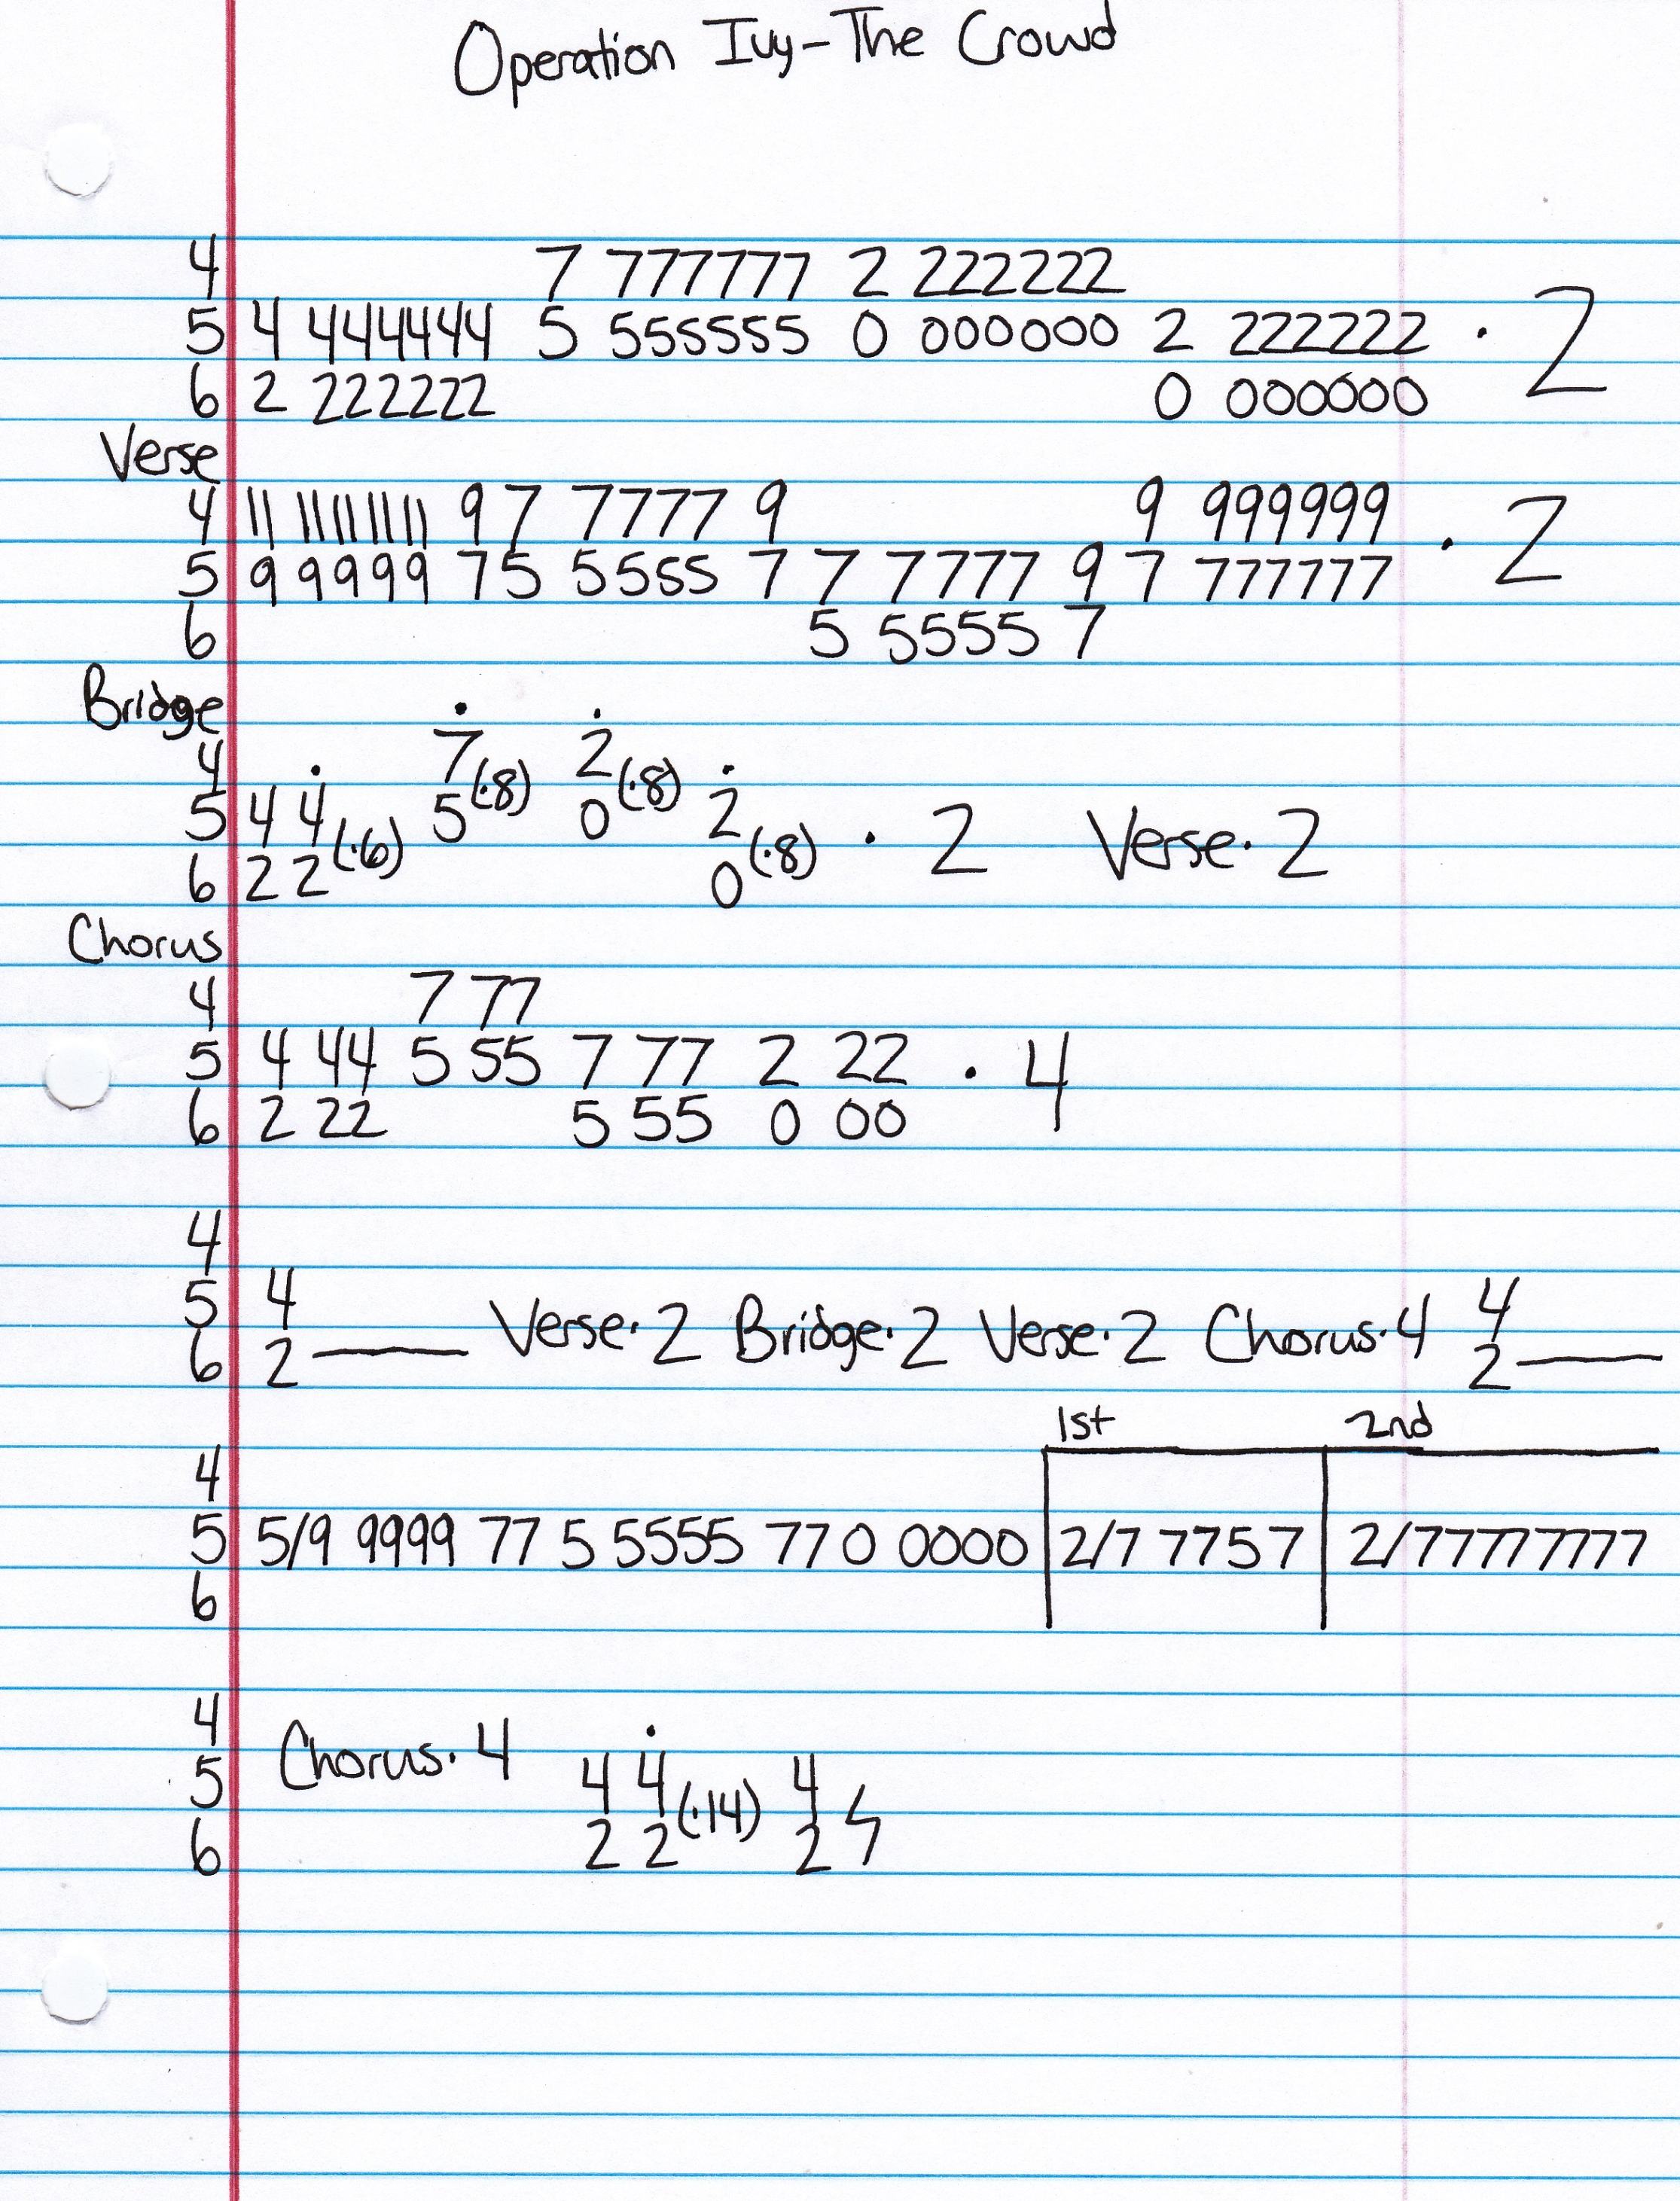 Operation Ivy-The Crowd
4 7 777777 2 222222
5 4 444444 5 555555 0 000000 2 222222 · 2
6 2 222222 0 000000
Verse
4 11 11111111 9 7 7777 9 9 999999
5 9 9999 7 5 5555 7 7 7777 9 7 777777 · 2
6 5 5555 7
Bridge
4 7 (·8) 2 (·8)
5 4 4 (·6) 5 0 2 (·8) · 2 Verse · 2
6 2 2 0
Chorus
4 7 77
5 4 44 5 55 7 77 2 22 · 4
6 2 22 5 55 0 00
4
5 4 Verse · 2 Bridge · 2 Verse · 2 Chorus · 4 4
6 2 2
1st 2nd
4
5 5/9 9999 77 5 5555 77 0 0000 2/7 7757 2/77777777
6
4 Chorus · 4
5 4 4 (·14) 4
6 2 2 2